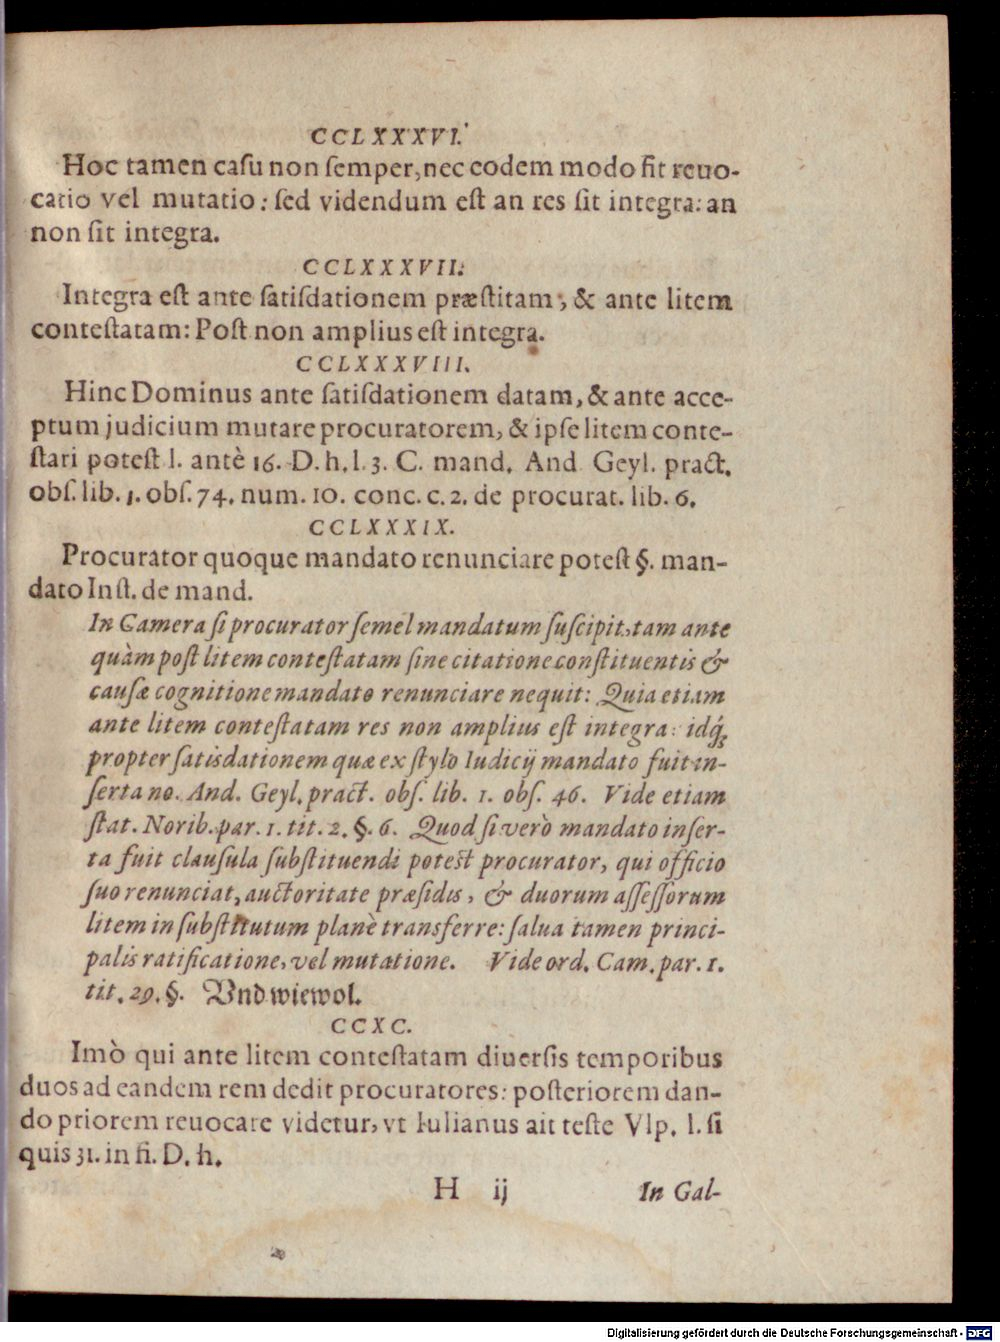 CCLXXXVI.
Hoc tamen caſu non ſemper, nec eodem modo fit reuo-
catio vel mutatio: ſed videndum eſt an res ſit integra: an
non ſit integra.
CCLXXXVII.
Integra eſt ante ſatiſdationem præſtitam, & ante litem
conteſtatam: Poſt non amplius eſt integra.
CCLXXXVIII.
Hinc Dominus ante ſatiſdationem datam, & ante acce-
ptum judicium mutare procuratorem, & ipſe litem conte-
ſtari poteſt l. antè 16. D. h. l. 3. C. mand. And Geyl. pract.
obſ. lib. 1. obſ. 74. num. 10. conc. c. 2. de procurat. lib. 6.
CCLXXXIX.
Procurator quoque mandato renunciare poteſt §. man-
dato Inſt. de mand.
In Camera ſi procurator ſemel mandatum ſuſcipit, tam ante
quàm poſt litem conteſtatam ſine citatione conſtituentis &
cauſæ cognitione mandato renunciare nequit: Quia etiam
ante litem conteſtatam res non amplius eſt integra: idq́;
propter ſatisdationem quæ ex ſtylo Iudicij mandato fuit in-
ſerta no. And. Geyl. pract. obſ. lib. 1. obſ. 46. Vide etiam
ſtat. Norib. par. 1. tit. 2. §. 6. Quod ſi verò mandato inſer-
ta fuit clauſula ſubſtituendi poteſt procurator, qui officio
ſuo renunciat, auctoritate præſidis, & duorum aſſeſſorum
litem in ſubſtitutum planè transferre: ſalua tamen princi-
palis ratificatione, vel mutatione. Vide ord. Cam. par. 1.
tit. 29. §. Vnd wiewol.
CCXC.
Imò qui ante litem conteſtatam diuerſis temporibus
duos ad eandem rem dedit procuratores: poſteriorem dan-
do priorem reuocare videtur, vt Iulianus ait teſte Vlp. l. ſi
quis 31. in fi. D. h.
H ij In Gal-
Digitalisierung gefördert durch die Deutsche Forschungsgemeinschaft - DFG